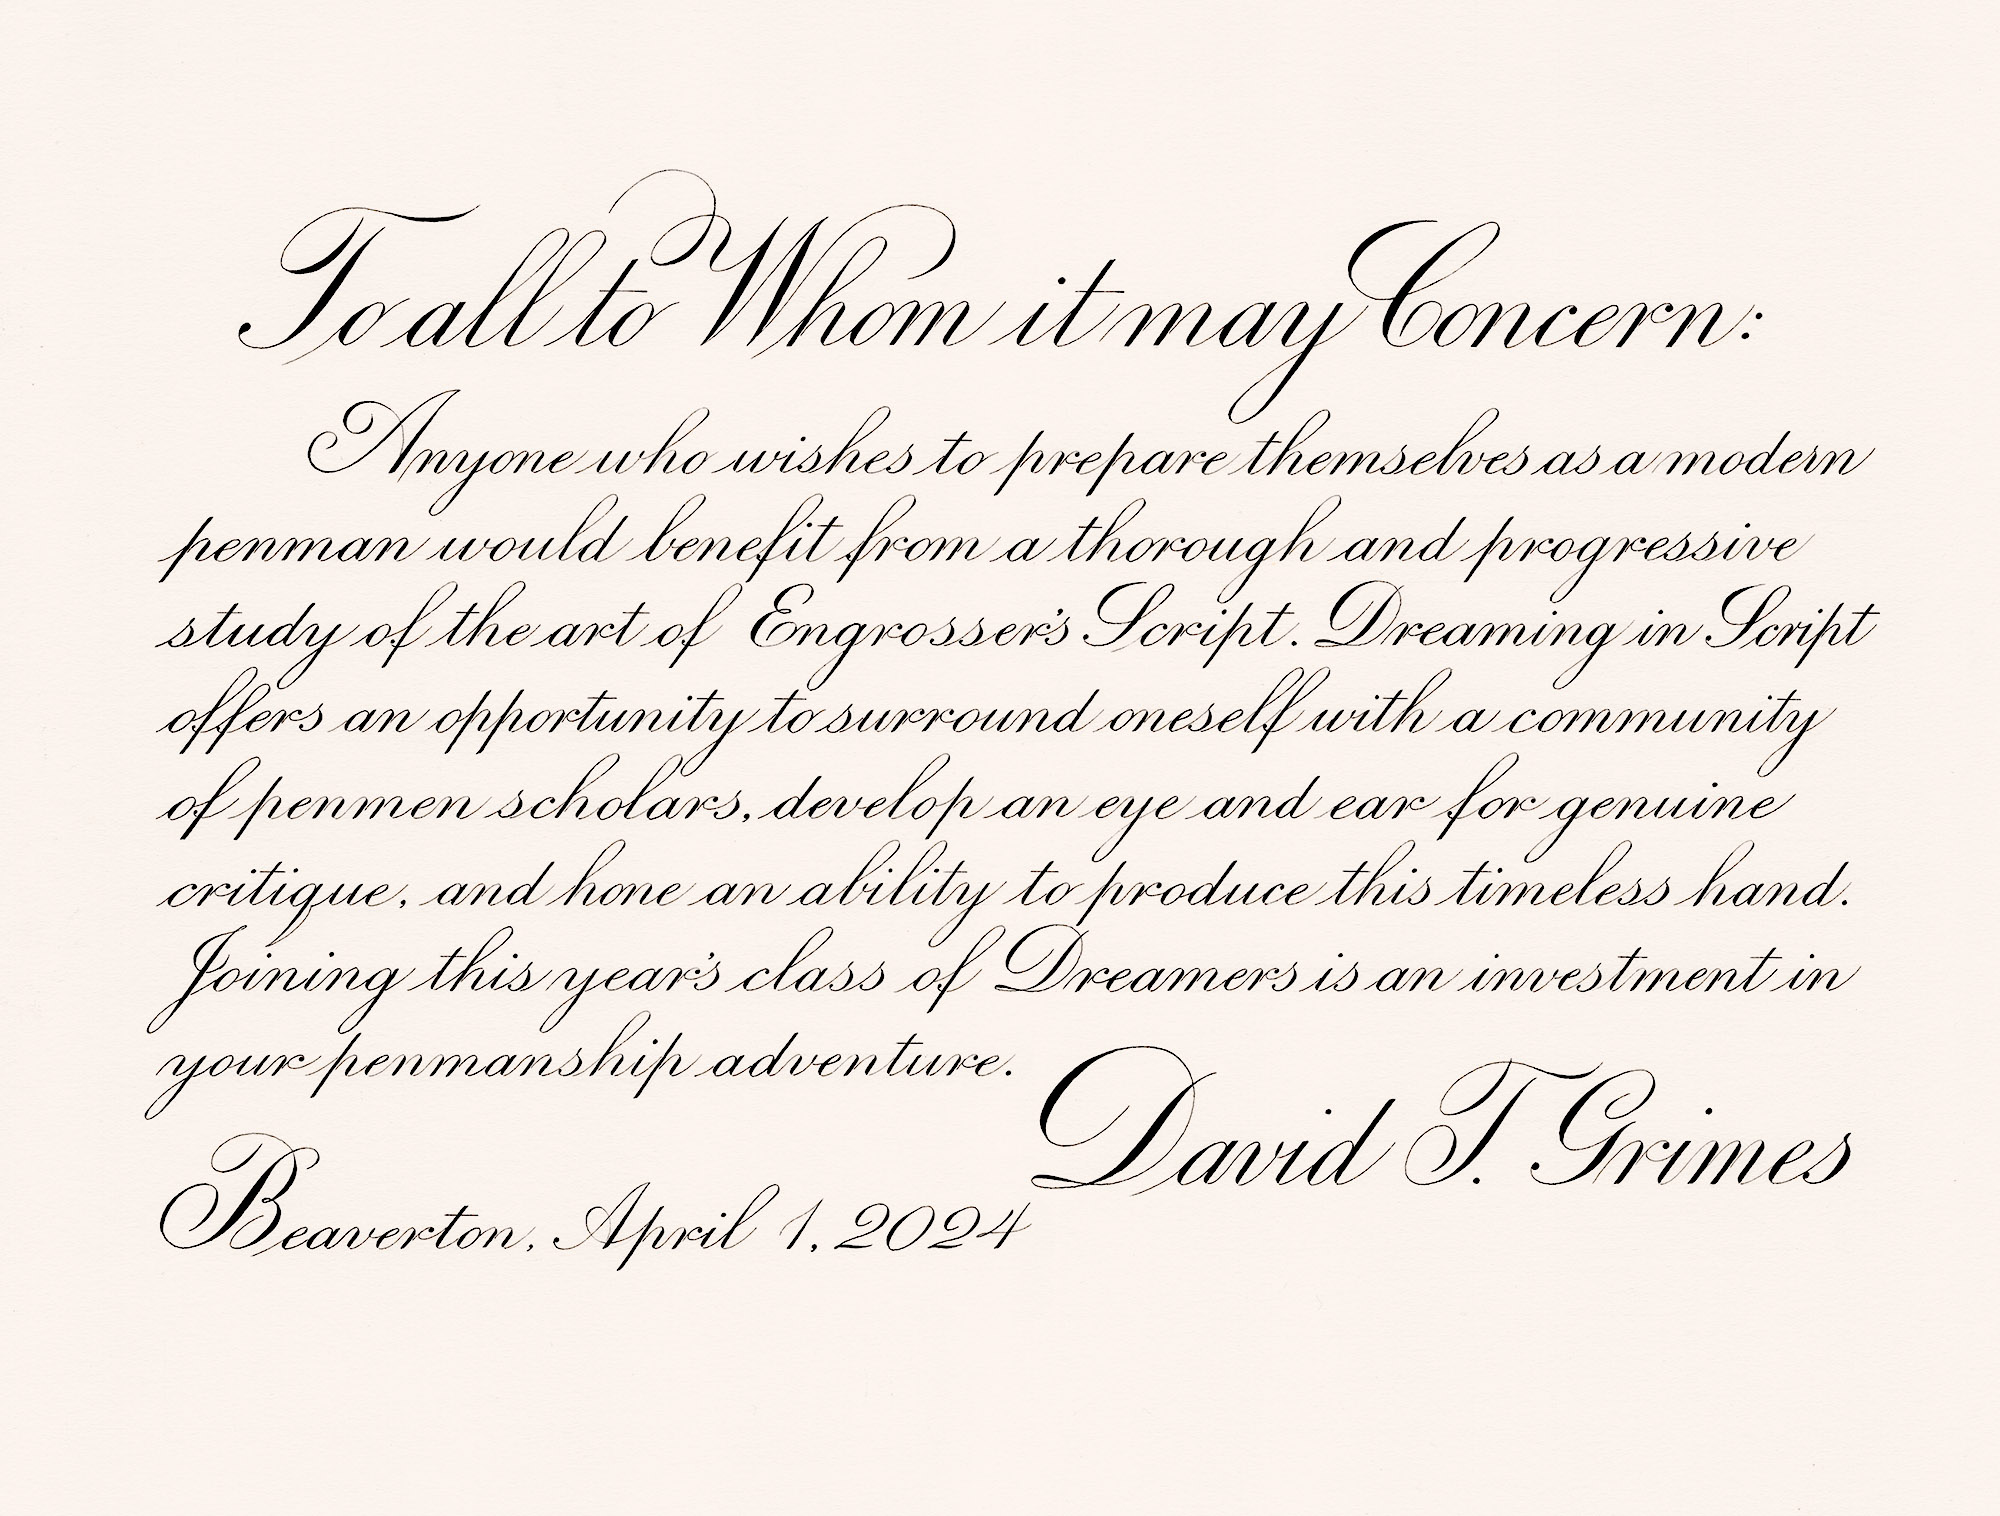 To all to Whom it may Concern:
Anyone who wishes to prepare themselves as a modern
penman would benefit from a thorough and progressive
study of the art of Engrosser's Script. Dreaming in Script
offers an opportunity to surround oneself with a community
of penmen scholars, develop an eye and ear for genuine
critique, and hone an ability to produce this timeless hand.
Joining this year's class of Dreamers is an investment in
your penmanship adventure.
David T. Grimes
Beaverton, April 1, 2024